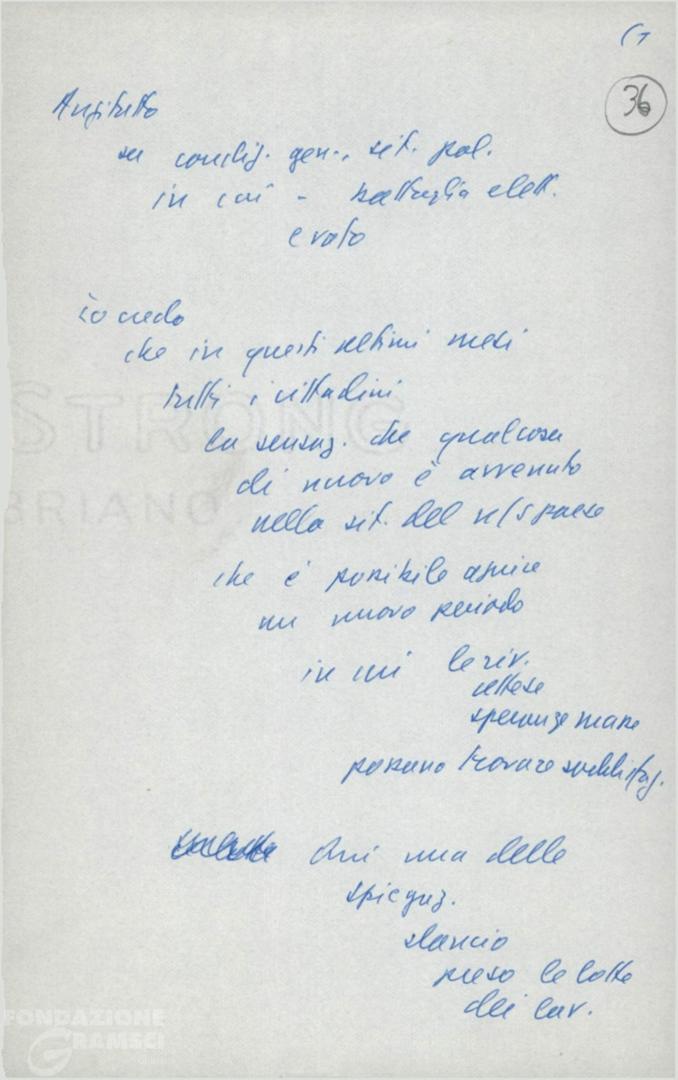 36
Anzitutto
su condiz. gen., sit. pol.
in cui - battaglia elett.
e voto
io credo
che in questi ultimi mesi
tutti i cittadini
la sensaz. che qualcosa
di nuovo è avvenuto
nella sit. del n/s paese
che è possibile aprire
un nuovo periodo
in cui le riv.
attese
speranze masse
possano trovare soddisfaz.
Qui una delle
spiegaz.
slancio
preso le lotte
dei lav.
STRONG
BRIANO
FONDAZIONE
GRAMSCI